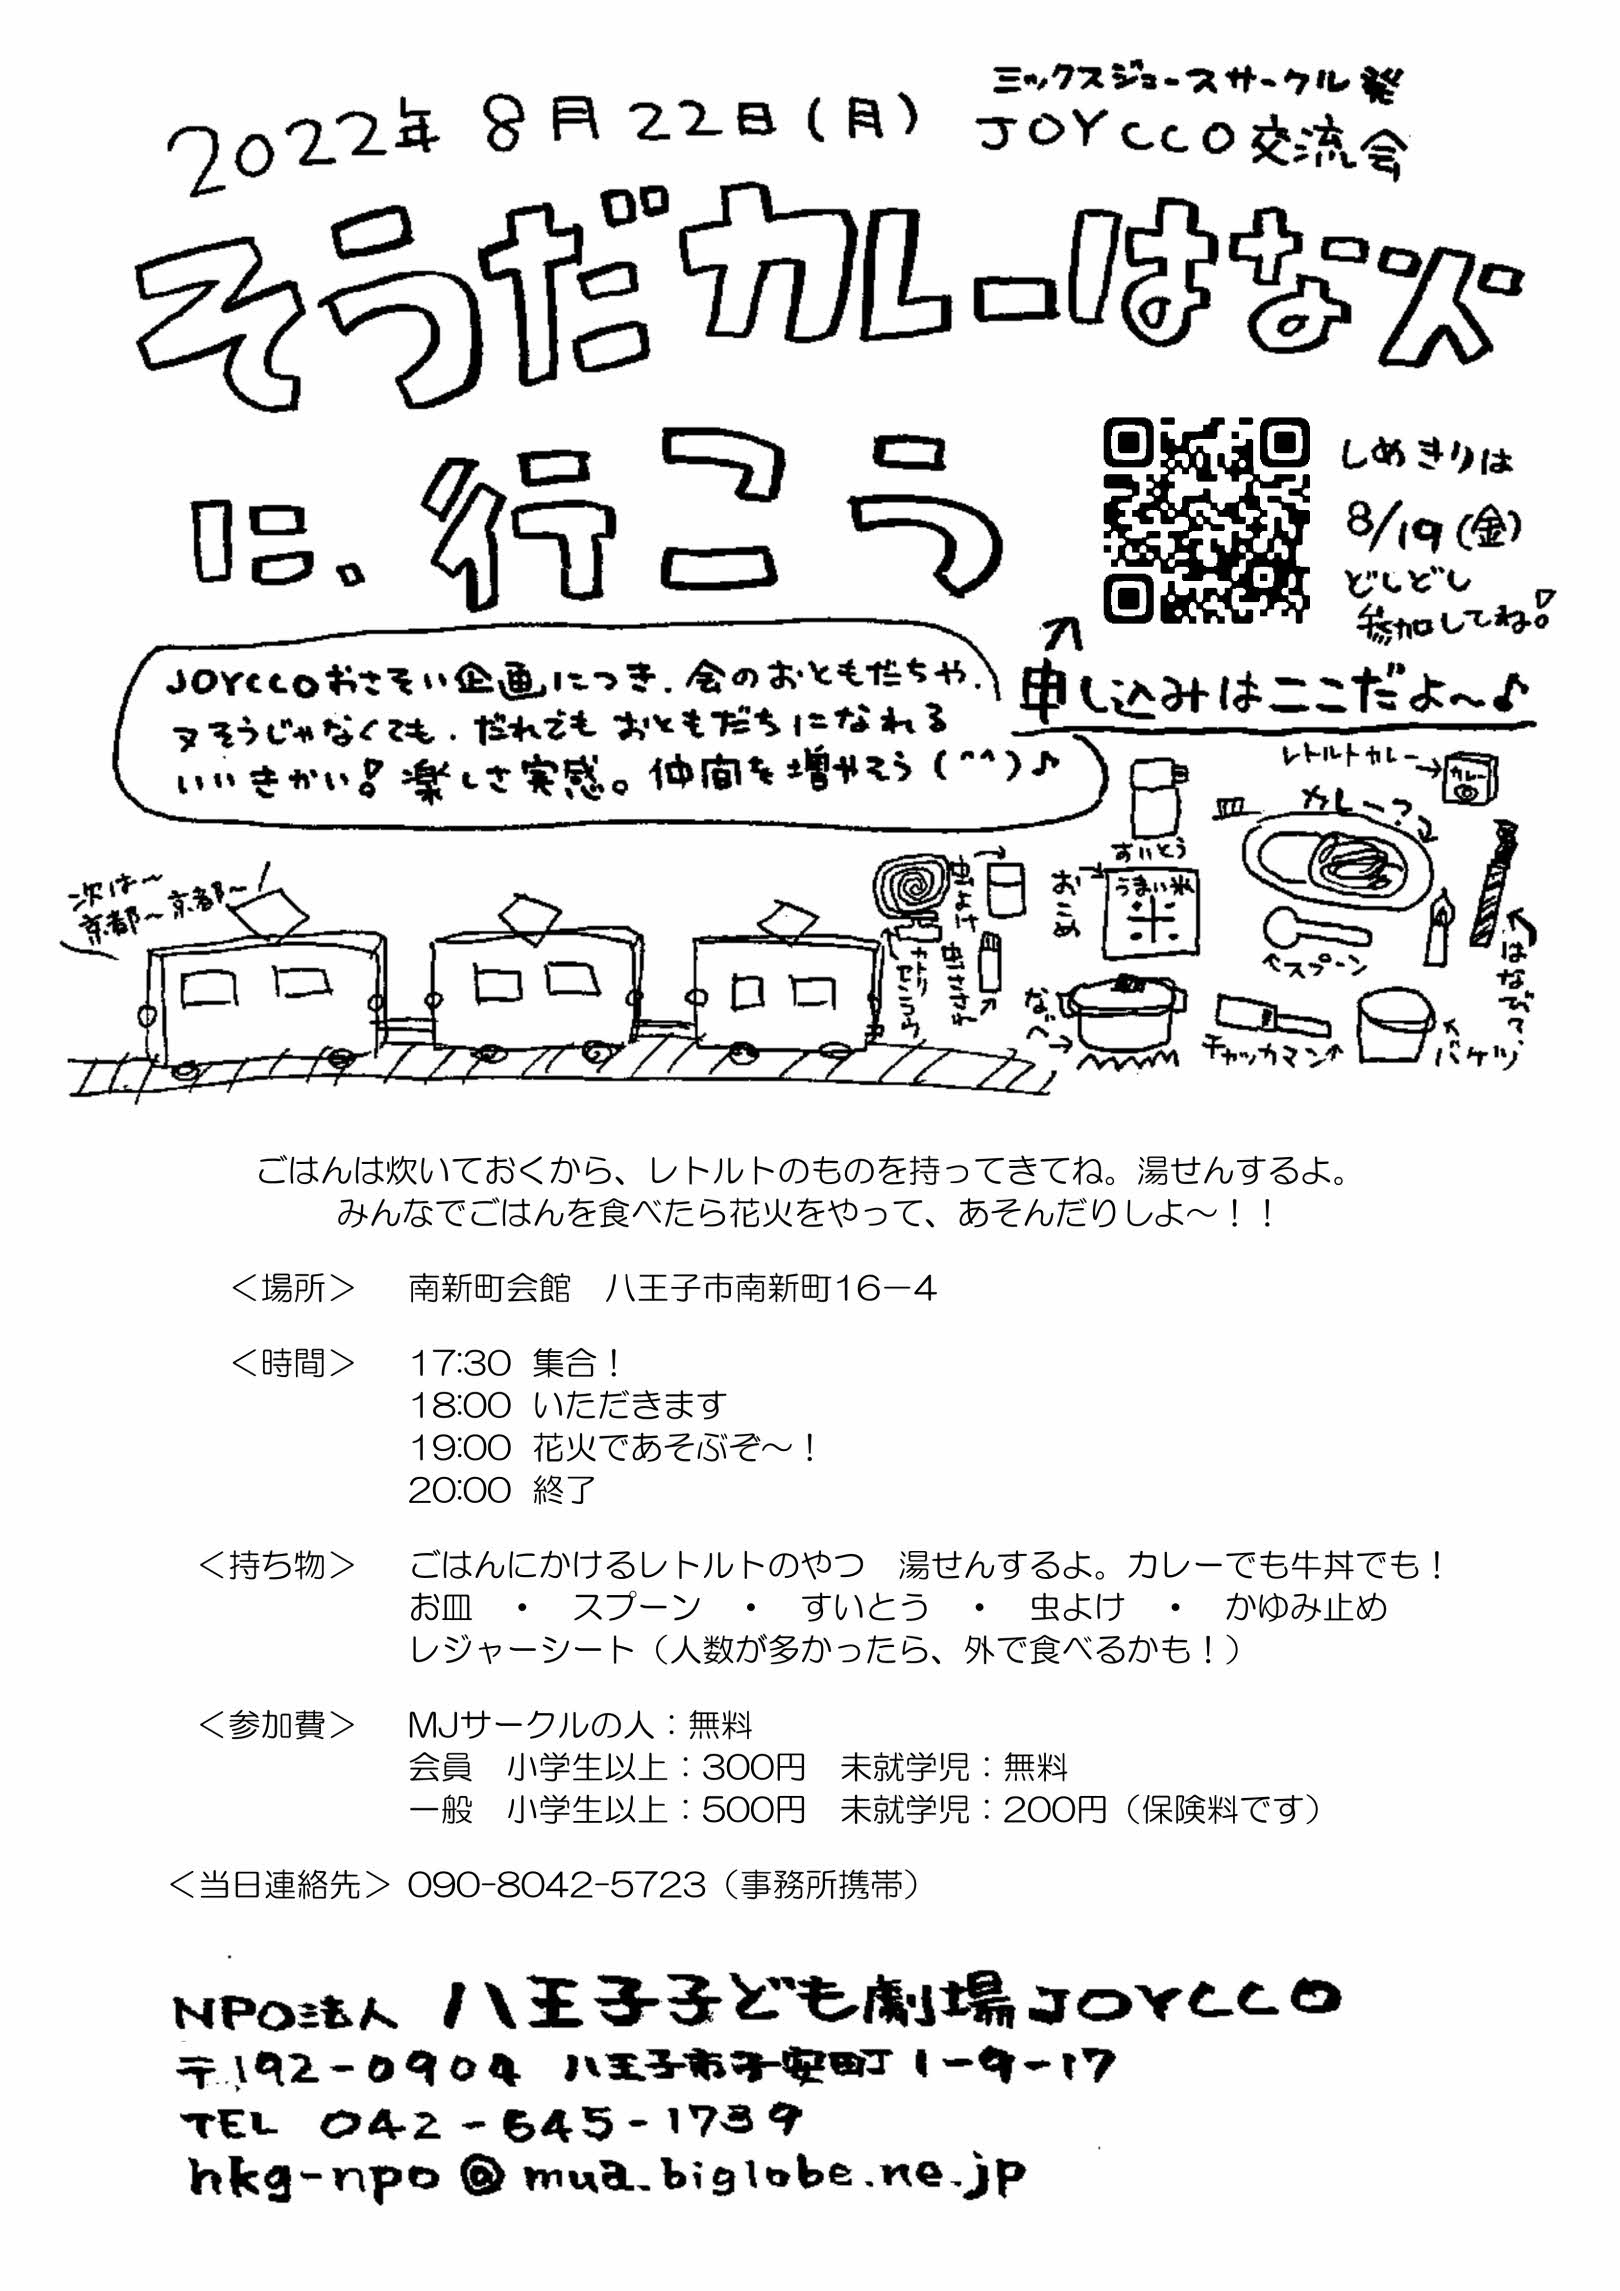 ミックスジュースサークル発
2022年 8月22日(月) JOYCCO交流会
そうだカレーはなび
に、行こう
しめきりは
8/19(金)
どしどし
参加してね!
申し込みはここだよ〜♪
JOYCCOおさそい企画につき、会のおともだちや、
そうじゃなくても、だれでもおともだちになれる
いいきかい!楽しさ実感。仲間を増やそう(^^)♪
レトルトカレー
カレー
カレー?
すいとう
おこめ
うまい米
米
虫よけ
虫ささされ
スプーン
はなび
なべ
チャッカマン
バケツ
次は〜
京都〜京都〜
ごはんは炊いておくから、レトルトのものを持ってきてね。湯せんするよ。
みんなでごはんを食べたら花火をやって、あそんだりしよ〜！！
＜場所＞ 南新町会館 八王子市南新町16－4
＜時間＞ 17:30 集合！
18:00 いただきます
19:00 花火であそぶぞ〜！
20:00 終了
＜持ち物＞ ごはんにかけるレトルトのやつ 湯せんするよ。カレーでも牛丼でも！
お皿 ・ スプーン ・ すいとう ・ 虫よけ ・ かゆみ止め
レジャーシート（人数が多かったら、外で食べるかも！）
＜参加費＞ MJサークルの人：無料
会員 小学生以上：300円 未就学児：無料
一般 小学生以上：500円 未就学児：200円（保険料です）
＜当日連絡先＞ 090-8042-5723（事務所携帯）
NPO法人 八王子子ども劇場JOYCCO
〒192-0904 八王子市子安町1-9-17
TEL 042-645-1739
hkg-npo@mua.biglobe.ne.jp